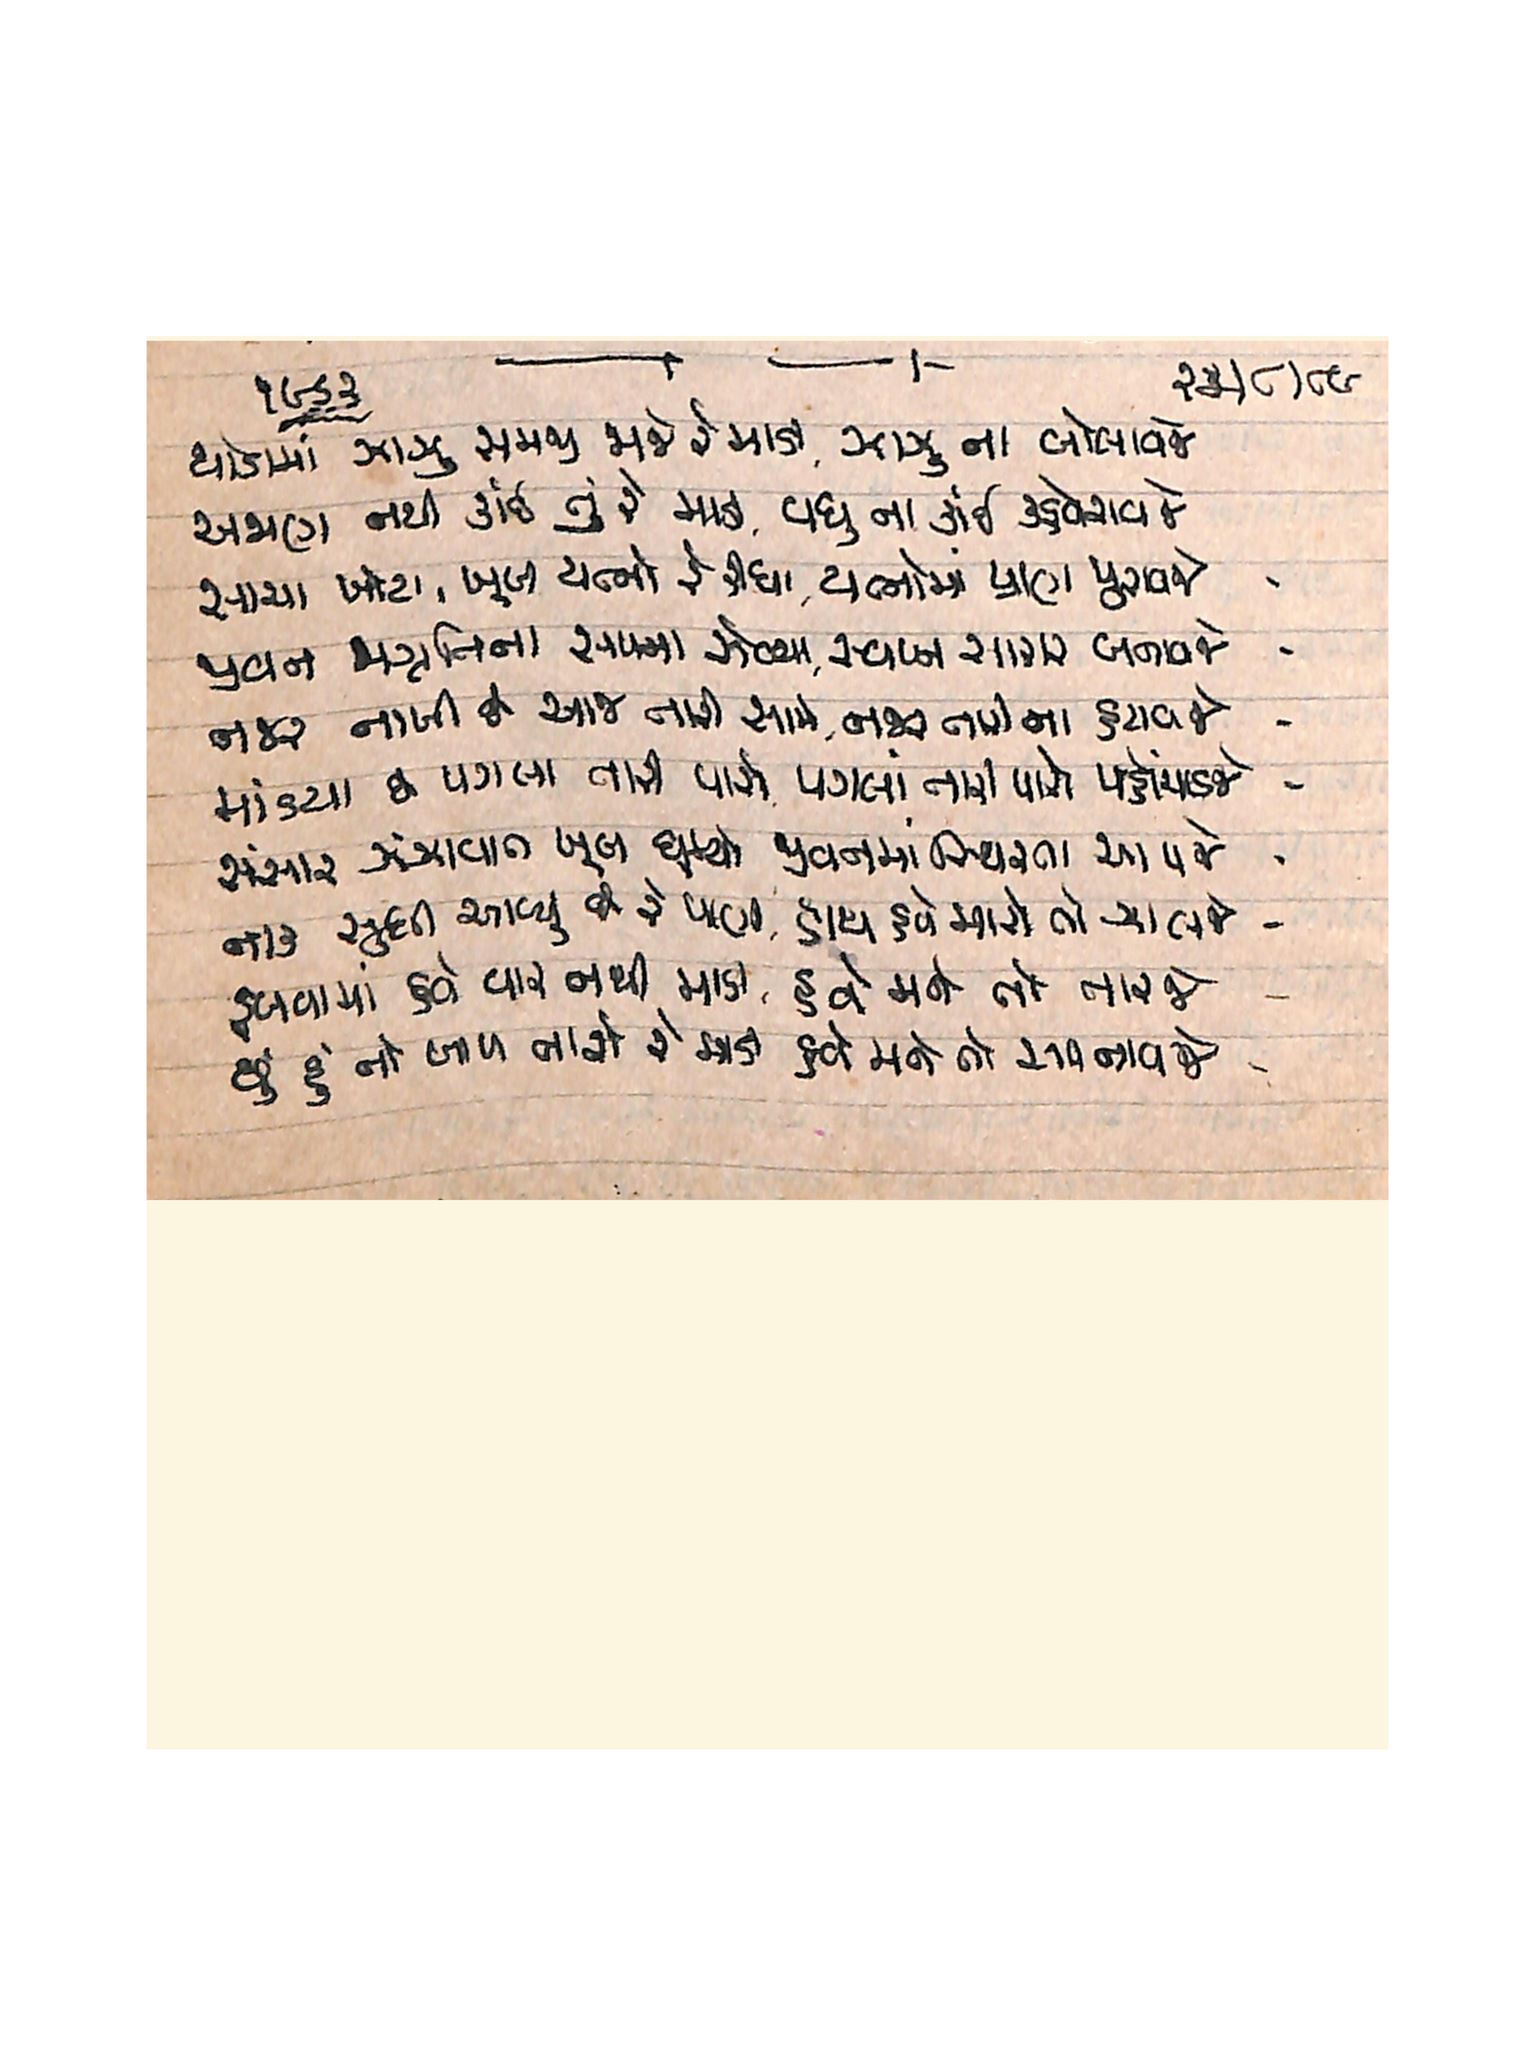 ૧૯૬૨ ૨૩/૮/૮૯
થોડામાં ઝાઝુ સમજી જાજે રે માડી, ઝાઝુ ના બોલાવજે
અજાણ નથી કાંઈ તું રે માડી, વધુ ના કાંઈ કહેવરાવજે
સાચા ખોટા, ખૂબ યત્નો રે કીધા, યત્નોમાં પ્રાણ પુરાવજે -
જીવન જાગૃતિના સપના સેવ્યા, સ્વપ્ન સાકાર બનાવજે -
નજર નાખી છે આજ તારી સામે, નજર તારી ના હટાવજે -
માંડયા છે પગલા તારી પાસે, પગલાં તારી પાસે પહોંચાડજે -
સંસાર ઝંઝાવાત ખૂબ ઘુમ્યો જીવનમાં સ્થિરતા આપજે -
નાક સુધી આવ્યું છે રે પાણી, હાથ હવે મારો તો ઝાલજે -
ડૂબવામાં હવે વાર નથી માડી, હવે મને તો તારજે -
છું હું તો બાળ તારો રે માડી હવે મને તો અપનાવજે -